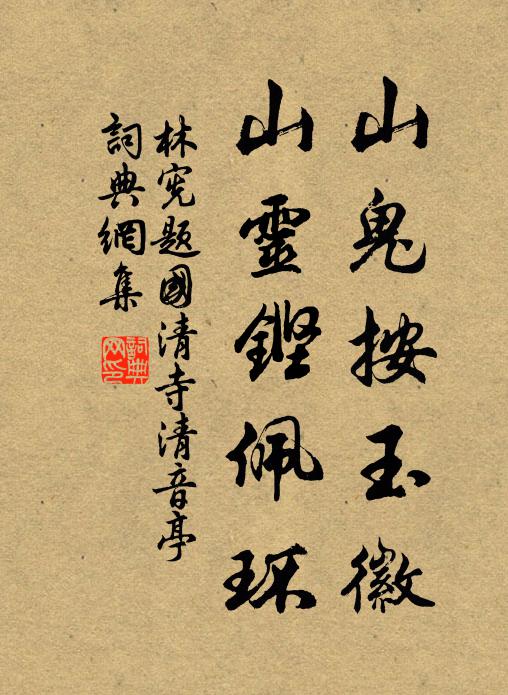 山鬼按玉徽
山靈鏗佩環
林宪題國清寺清音亭
詞典網集
詞典網印